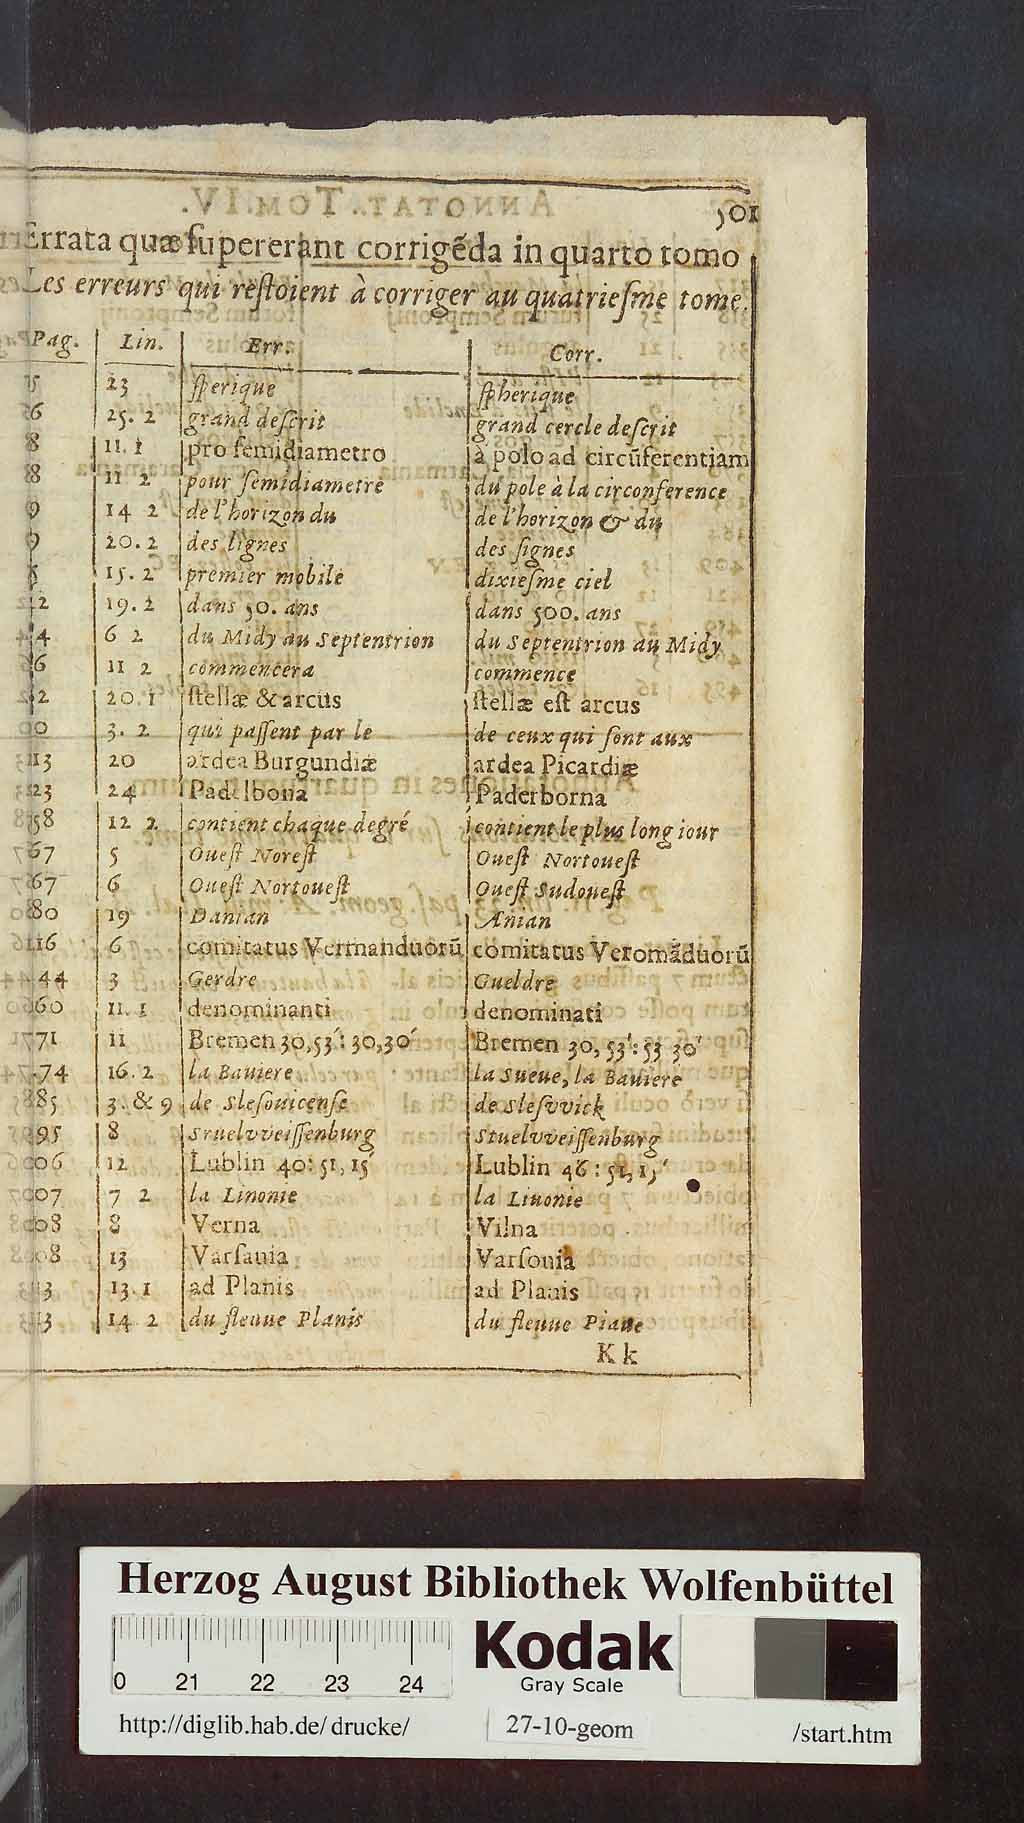 501
Errata quæ supererant corrigẽda in quarto tomo
Les erreurs qui reſtoient à corriger au quatrieſme tome.
Pag. Lin. Err. Corr.
23 ſperique ſpherique
25. 2 grand deſcrit grand cercle deſcrit
8 11. 1 pro ſemidiametro à polo ad circũferentiam
8 11 2 pour ſemidiametre du pole à la circonference
9 14 2 de l'horizon du de l'horizon & du
9 20. 2 des lignes des ſignes
15. 2 premier mobile dixieſme ciel
19. 2 dans 50. ans dans 500. ans
6 2 du Midy au Septentrion du Septentrion au Midy
11 2 commencera commence
20. 1 ſtellæ & arcus ſtellæ eſt arcus
3. 2 qui paſſent par le de ceux qui ſont aux
20 ardea Burgundiæ ardea Picardiæ
24 Padelbona Paderborna
12 2 contient chaque degré contient le plus long iour
67 5 Oueſt Noreſt Oueſt Nortoueſt
67 6 Oueſt Nortoueſt Oueſt Sudoueſt
80 19 Danian Ænian
16 6 comitatus Vermanduorũ comitatus Veromãduorũ
44 3 Gerdre Gueldre
60 11. 1 denominanti denominati
71 11 Bremen 30,53′: 30,30′ Bremen 30, 53′: 53 30′
74 16. 2 la Bauiere la Sueue, la Bauiere
85 3. & 9 de Sleſouicenſe de Sleſvvick
95 8 Sruelvveiſſenburg Stuelvveiſſenburg
06 12 Lublin 40: 51, 15′ Lublin 46: 51, 15′
07 7 2 la Linonie la Liuonie
08 8 Verna Vilna
08 13 Varſauia Varſouia
13 13. 1 ad Planis ad Planis
13 14 2 du fleuue Planis du fleuue Piane
K k
Herzog August Bibliothek Wolfenbüttel
0 21 22 23 24
Kodak
Gray Scale
http://diglib.hab.de/drucke/ 27-10-geom /start.htm